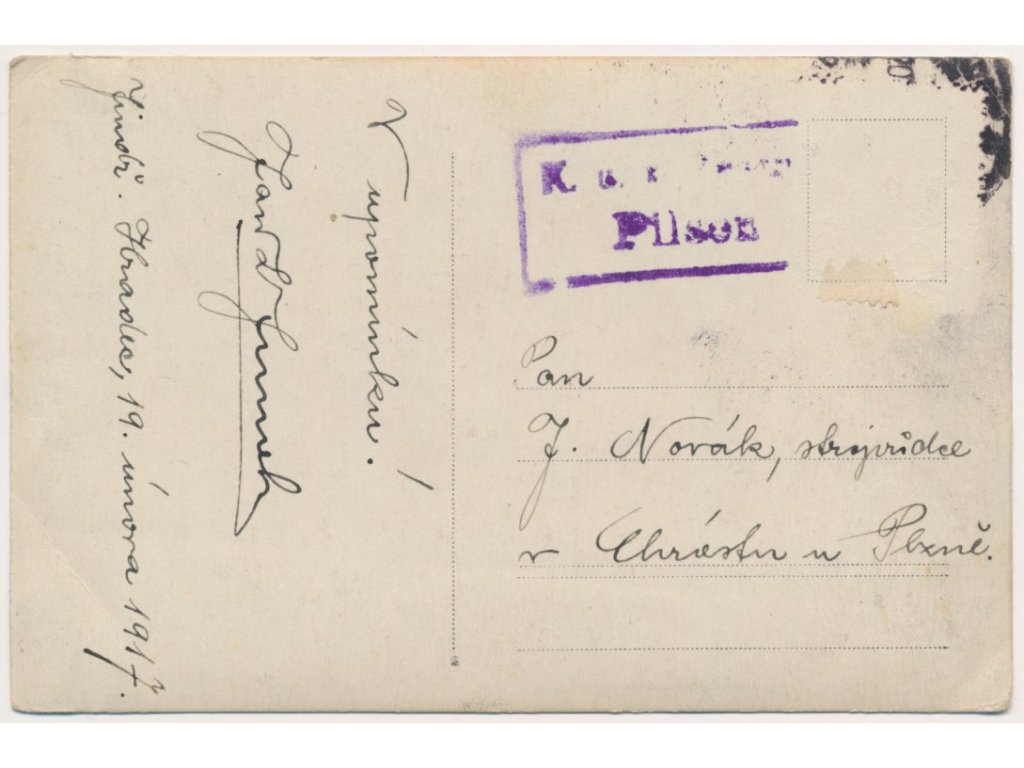 V upomínku!
Jindř. Hradec, 19. února 1917.
K. u. k.
Pilsen
Pan
J. Novák, strojvůdce
v Chrástu u Plzně.